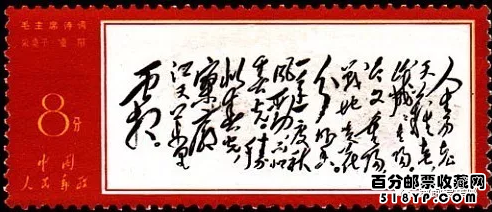 毛主席诗词
采桑子·重阳
8分
中国
人民邮政
人生易老
天难老
岁岁重阳
今又重阳
战地黄花
分外香
一年一度秋
风劲不似
春光胜
似春光
寥廓
江天万里
霜
百分邮票收藏网
518YP.com